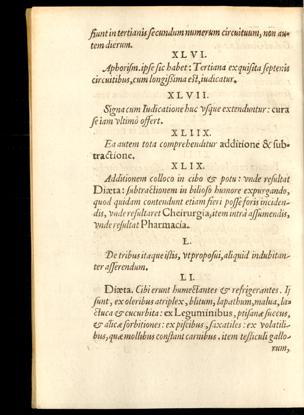 fiunt in tertianis secundum numerum circuituum, non au-
tem dierum.
XLVI.
Aphorism. ipse sic habet: Tertiana exquisita septenis
circuitibus, cum longissima est, iudicatur.
XLVII.
Signa cum Iudicatione huc vsque extenduntur: cura
se iam vltimò offert.
XLIIX.
Ea autem tota comprehenditur additione & sub-
tractione.
XLIX.
Additionem colloco in cibo & potu: vnde resultat
Diæta: subtractionem in bilioso humore expurgando,
quod quidam contendunt etiam fieri posse foris inciden-
dis, vnde resultaret Cheirurgia, item intrà assumendis,
vnde resultat Pharmacia.
L.
De tribus itaque istis, vt proposui, aliquid indubitan-
ter asserendum.
LI.
Diæta. Cibi erunt humectantes & refrigerantes. Ij
sunt, ex oleribus atriplex, blitum, lapathum, malua, la-
ctuca & cucurbita: ex Leguminibus, ptisanæ succus,
& alicæ sorbitiones: ex piscibus, saxatiles: ex volatili-
bus, quæ mollibus constant carnibus, item testiculi gallo-
rum,